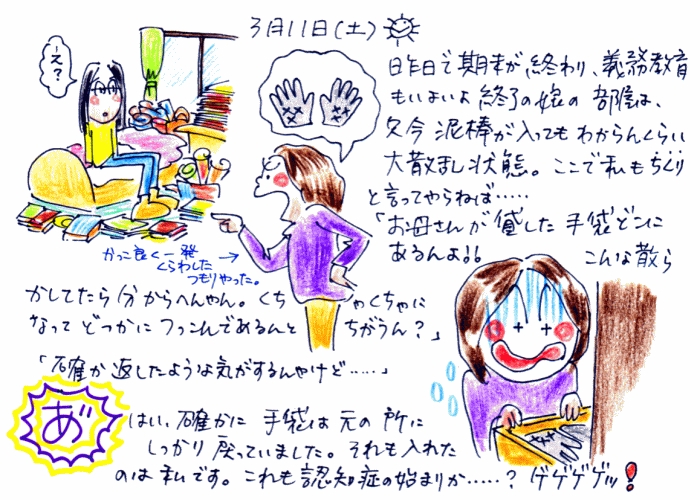 3月11日(土)
昨日で期末が終わり、義務教育
もいよいよ終了の娘の部屋は、
只今泥棒が入ってもわからんくらい
大散乱し状態。ここで私もちくり
と言ってやらねば……
えー?
かっこ良く一発
くらわした
つもりやった。
「お母さんが貸した手袋どこに
あるんよ!! こんな散ら
かしてたら分からへんやん。くちゃくちゃに
なってどっかにつっこんであるんとちがうん?」
「確か返したような気がするんやけど……」
あ゛
はい、確かに手袋は元の所に
しっかり戻っていました。それも入れた
のは私です。これも認知症の始まりか……? ゲゲゲゲッ!